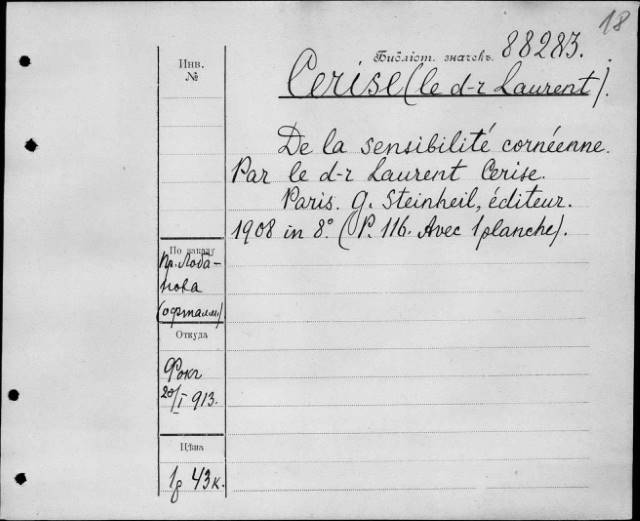 18
Библіот. значекъ 88283.
Инв.
№
Cerise (le d-r Laurent).
De la sensibilité cornéenne.
Par le d-r Laurent Cerise.
Paris. G. Steinheil, éditeur.
1908 in 8° (P. 116. Avec 1 planche).
По заказу
Пр. Лоба-
нова
(офталм.)
Откуда
Фокъ
20/I 913.
Цѣна
1р 43к.